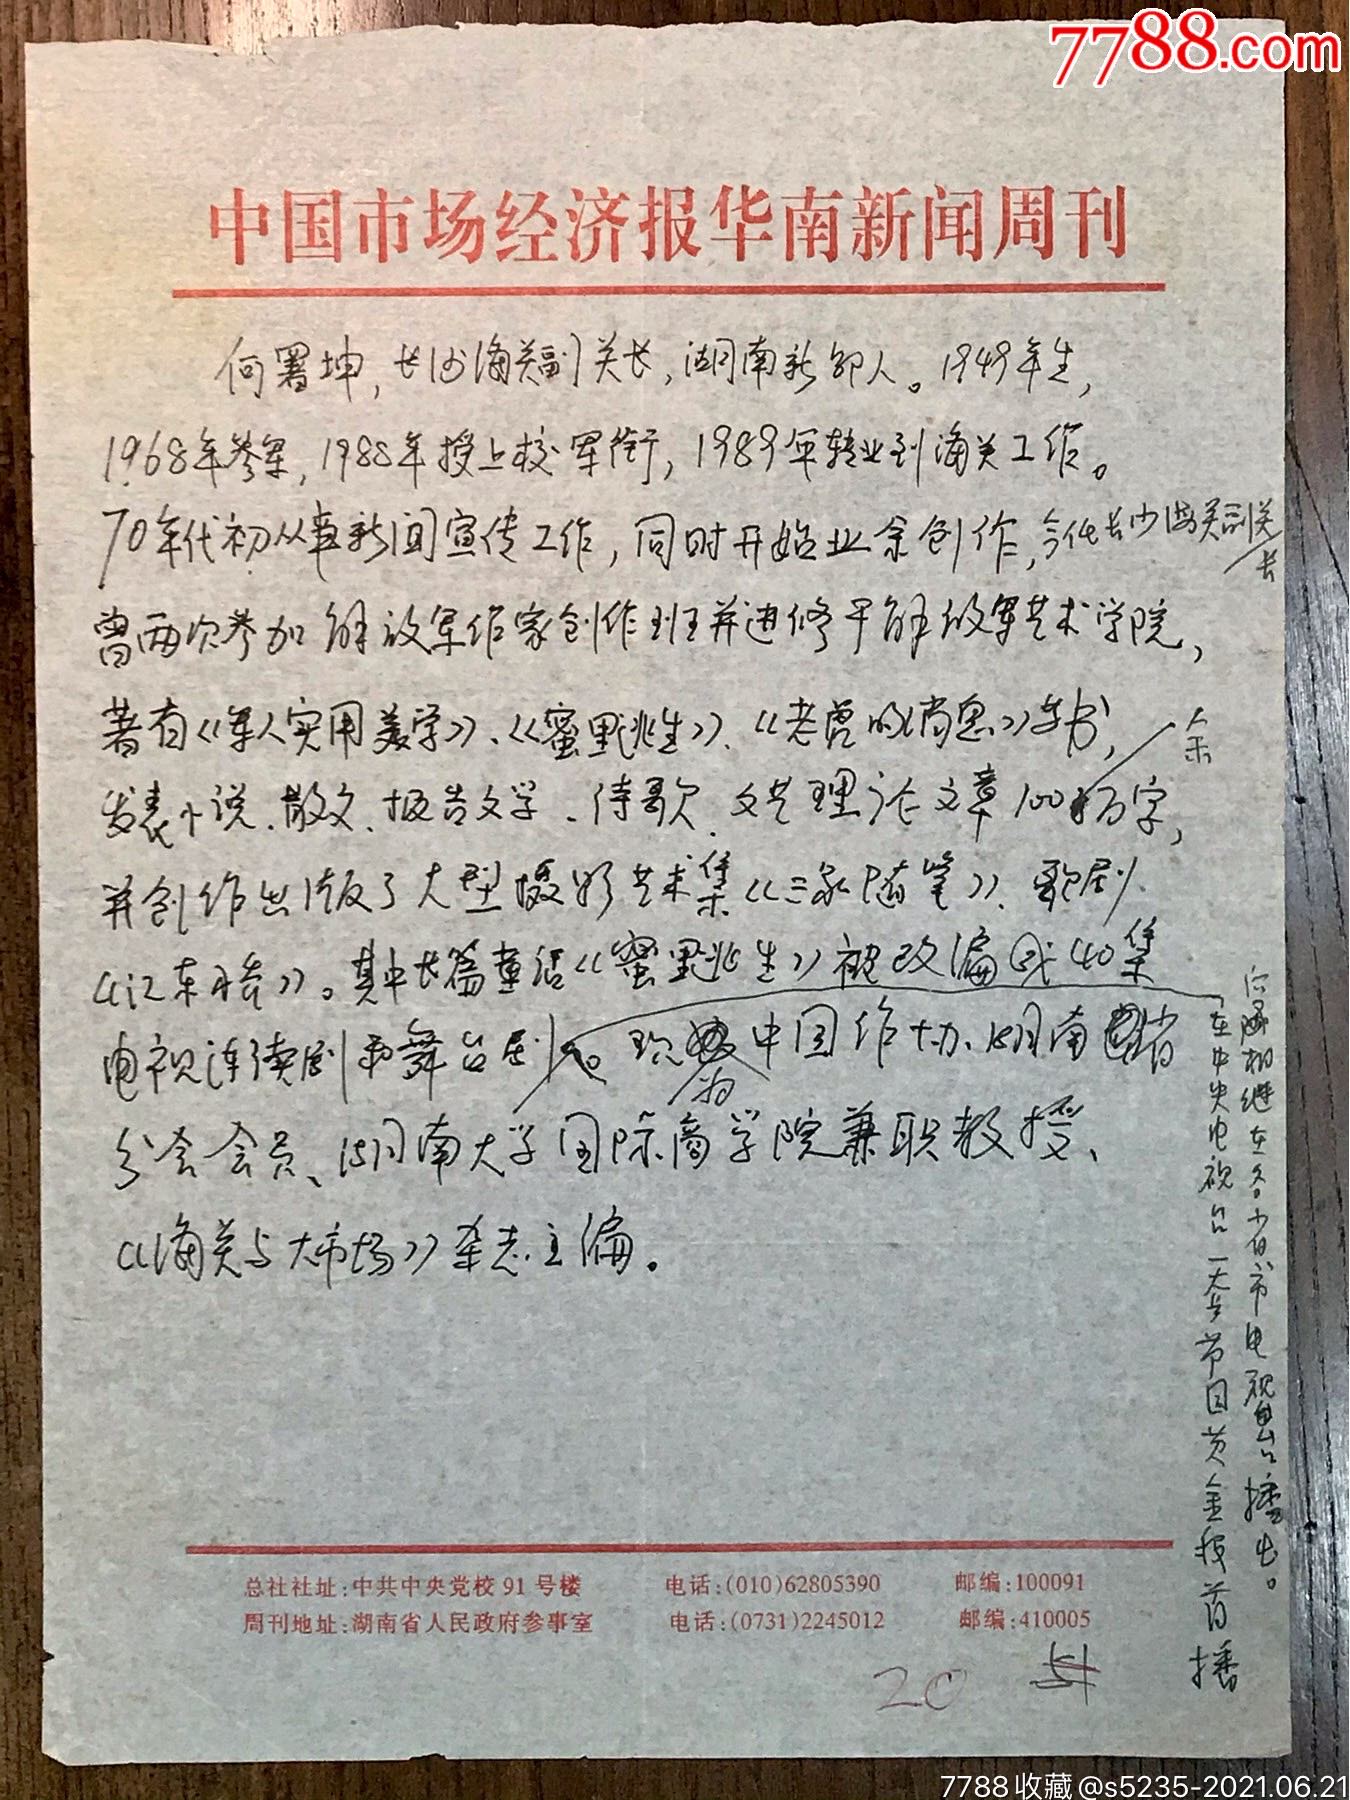 7788.com
中国市场经济报华南新闻周刊
何署坤,长沙海关副关长,湖南新邵人。1949年生,
1968年参军,1988年授上校军衔,1989年转业到海关工作。
70年代初从事新闻宣传工作,同时开始业余创作,今任长沙海关副关
长
曾两次参加解放军作家创作班并进修于解放军艺术学院,
著有《军人实用美学》、《蜜野逃生》、《老虎的消息》等书,
余
发表小说、散文、报告文学、诗歌、文艺理论文章100万字,
并创作出版了大型摄影艺术集《三家随笔》、歌剧
《江东》。其中长篇童话《蜜野逃生》被改编成40集
电视连续剧和舞台剧。现为中国作协、湖南省
分会会员、湖南大学国际商学院兼职教授、
《海关与大市场》杂志主编。
在中央电视台一大套节目黄金段首播
后陆相继在各省市电视台播出。
总社社址:中共中央党校91号楼 电话:(010)62805390 邮编:100091
周刊地址:湖南省人民政府参事室 电话:(0731)2245012 邮编:410005
20 51
7788收藏@s5235-2021.06.21